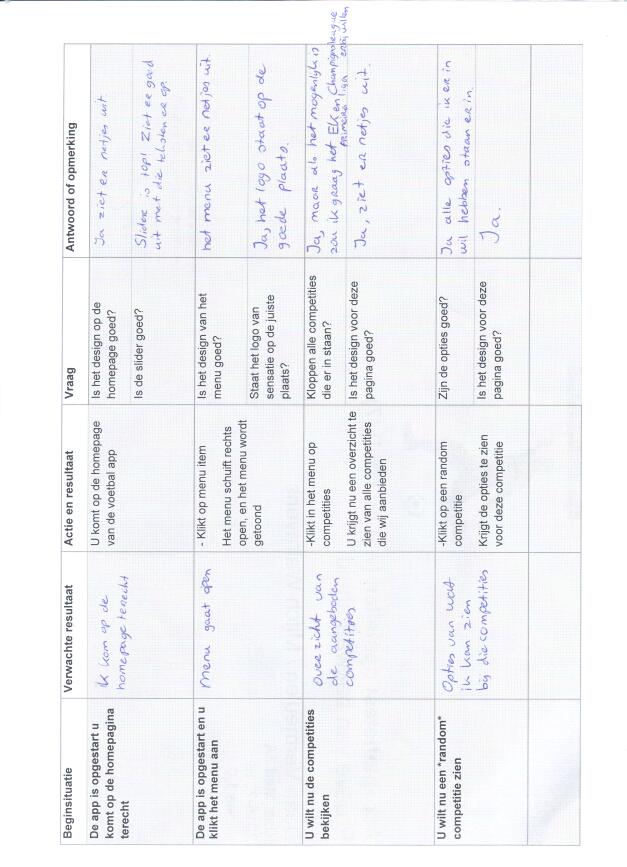 Beginsituatie
Verwachte resultaat
Actie en resultaat
Vraag
Antwoord of opmerking
De app is opgestart u
komt op de homepagina
terecht
ik kom op de
homepage terecht
U komt op de homepage
van de voetbal app
Is het design op de
homepage goed?
Ja ziet er netjes uit.
Is de slider goed?
Slider is top! Ziet er goed
uit met die teksten er op.
De app is opgestart en u
klikt het menu aan
Menu gaat open
- Klikt op menu item
Het menu schuift rechts
open, en het menu wordt
getoond
Is het design van het
menu goed?
het menu ziet er netjes uit.
Staat het logo van
sensatie op de juiste
plaats?
Ja, het logo staat op de
goede plaats.
U wilt nu de competities
bekijken
Overzicht van
de aangeboden
competities
-Klikt in het menu op
competities
U krijgt nu een overzicht te
zien van alle competities
die wij aanbieden
Kloppen alle competities
die er in staan?
Ja, maar als het mogenlijk is
zou ik graag het EK en Champignsleague
primeira liga erbij willen
Is het design voor deze
pagina goed?
Ja, ziet er netjes uit.
U wilt nu een *random*
competitie zien
Opties van wat
ik kan zien
bij die competities
-Klikt op een random
competitie
Krijgt de opties te zien
voor deze competitie
Zijn de opties goed?
Ja alle opties die ik er in
wil hebben staan er in.
Is het design voor deze
pagina goed?
Ja.